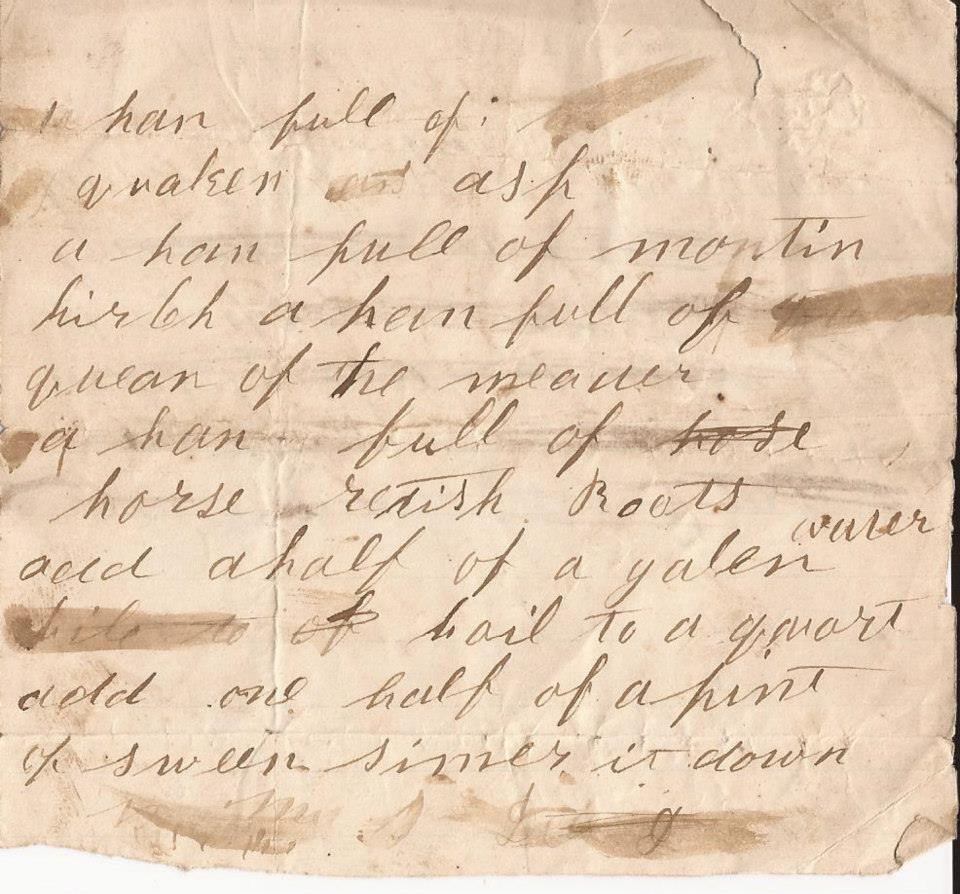 a han full of:
quaken asp
a han full of montin
hirbh a han full of
quean of the meauer
a han full of hose
horse retish Roots
add ahalf of a galen warer
of boil to a quart
add one half of a pint
of sween simer it down